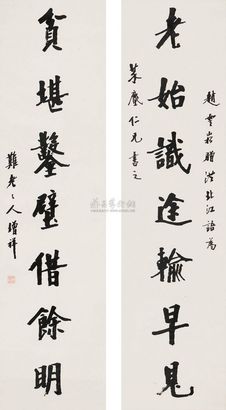 老始識途輸早見
趙雲崧贈洪北江語為
廬仁兄書之
貧堪鑿壁借餘明
難老々人增祥